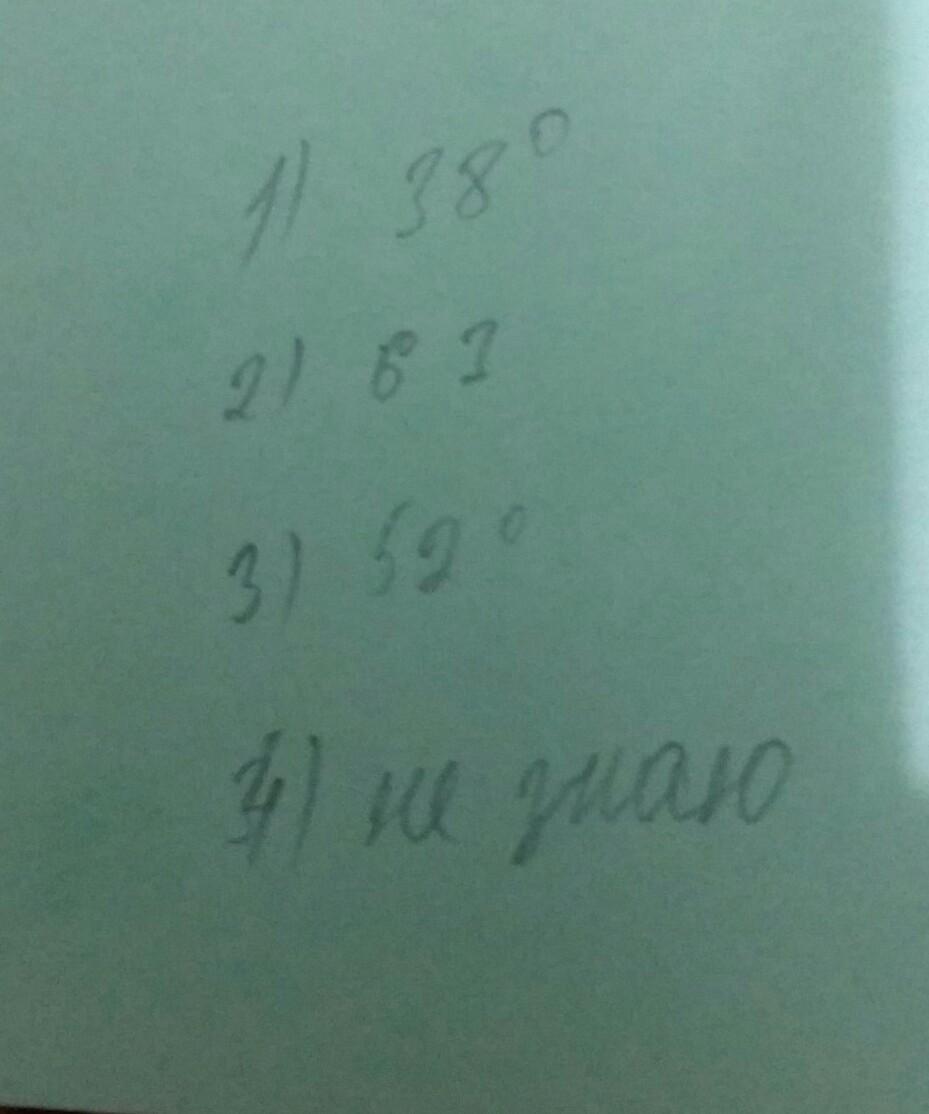 1) 38°
2) 63
3) 52°
4) не знаю